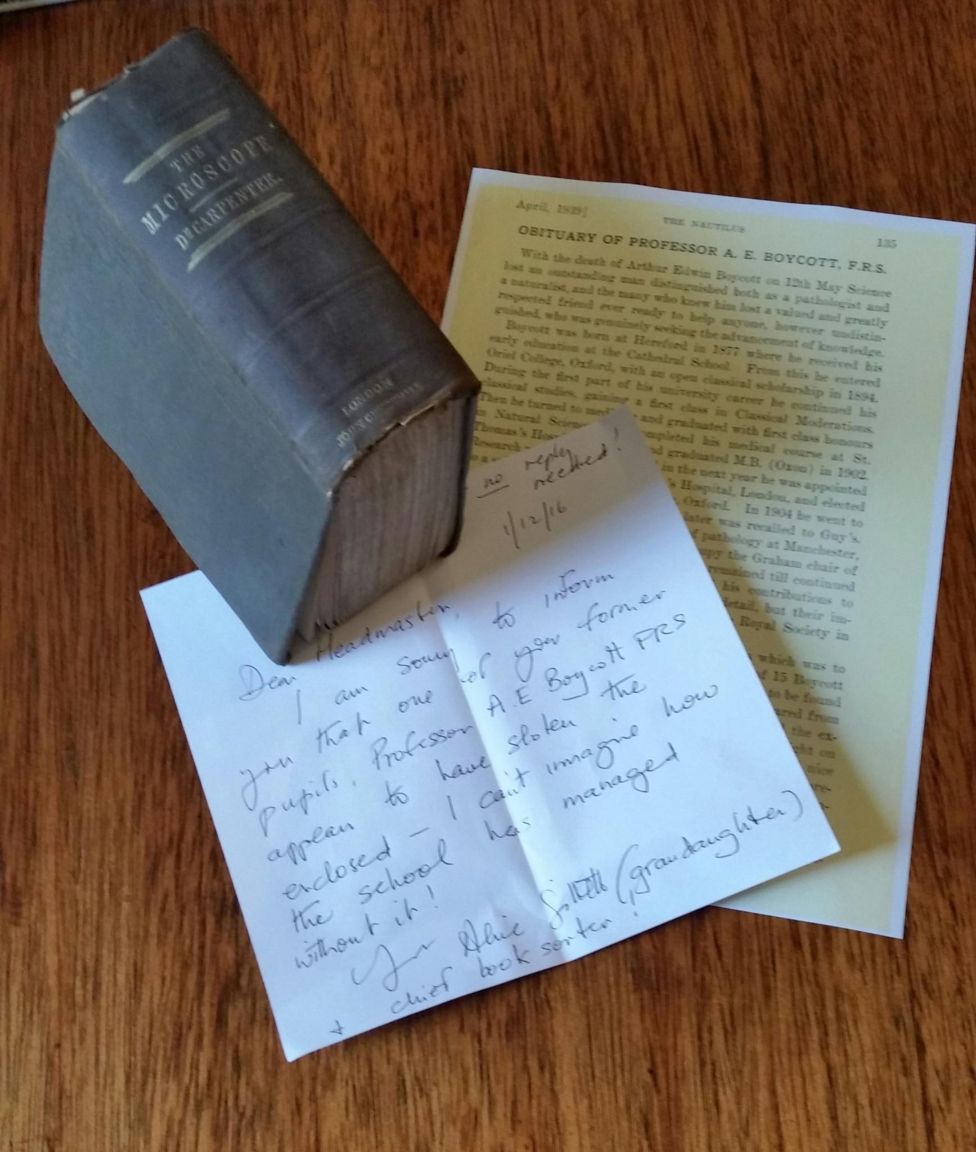 THE
MICROSCOPE
DR CARPENTER.
LONDON
April, 1939]
THE NAUTILUS
135
OBITUARY OF PROFESSOR A. E. BOYCOTT, F.R.S.
With the death of Arthur Edwin Boycott on 12th May Science
lost an outstanding man distinguished both as a pathologist and
a naturalist, and the many who knew him lost a valued and greatly
respected friend ever ready to help anyone, however undistin-
guished, who was genuinely seeking the advancement of knowledge.
Boycott was born at Hereford in 1877 where he received his
early education at the Cathedral School. From this he entered
Oriel College, Oxford, with an open classical scholarship in 1894.
During the first part of his university career he continued his
classical studies, gaining a first class in Classical Moderations.
Then he turned to and graduated with first class honours
in Natural completed his medical course at St.
Thomas's graduated M.B. (Oxon) in 1902.
Research in the next year he was appointed
Hospital, London, and elected
Oxford. In 1904 he went to
later was recalled to Guy's.
of pathology at Manchester,
the Graham chair of
remained till continued
his contributions to
but their im-
Royal Society in
which was to
of 15 Boycott
to be found
from
the ex-
on
nice
no reply
needed!
1/12/16
Dear Headmaster,
I am sorry to inform
you that one of your former
pupils, Professor A.E Boycott FRS
appears to have stolen the
enclosed – I can't imagine how
the school has managed
without it!
Alice (grandaughter)
+ chief book sorter!